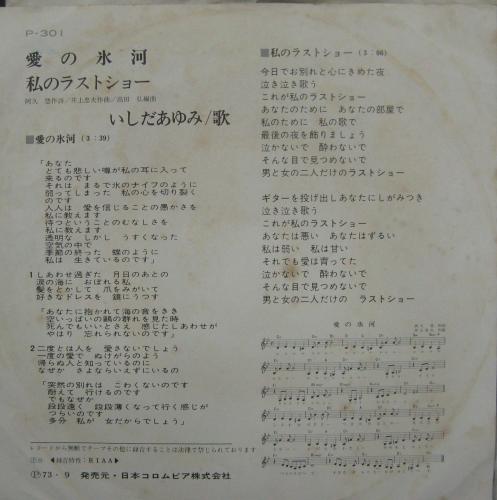 P-301
愛の氷河
私のラストショー
阿久 悠作詩/井上忠夫作曲/高田 弘編曲
いしだあゆみ/歌
■愛の氷河(3:39)
「あなた
とても悲しい噂が私の耳に入って
来るのです
それは まるで氷のナイフのように
弱ってしまった 私の心を切り裂く
のです
人人は 愛を信じることの愚かさを
私に教えます
待つということのむなしさを
私に教えます
透明な しかし うすくなった
空気の中で
季節の終った 蝶のように
私は 生きているのです」
1しあわせ過ぎた 月日のあとの
涙の海に おぼれる私
髪をとかして 爪をみがいて
好きなドレスを 鏡にうつす
「あなたに抱かれて海の音をきき
空いっぱいの鷗の群れを見た時
死んでもいいとさえ 感じたしあわせが
やはり 忘れられないのです」
2二度とは人を 愛さないでしょう
一度の愛で ぬけがらのよう
帰らぬ人と知っているのに
なぜか さよならいえずにいるの
「突然の別れは こわくないのです
耐えて 行けるのです
でもなぜか
段段遠く 段段薄くなって行く感じが
つらいのです
多分 私が 女だからでしょう」
レコードから無断でテープその他に録音することは法律で禁じられております
◀録音特性:RIAA▶
Ⓟ73・9 発売元・日本コロムビア株式会社
■私のラストショー(3:06)
今日でお別れと心にきめた夜
泣き泣き歌う
これが私のラストショー
あなたのために あなたの部屋で
私のために 私の歌で
最後の夜を飾りましょう
泣かないで 酔わないで
そんな目で見つめないで
男と女の二人だけのラストショー
ギターを投げ出しあなたにしがみつき
泣き泣き歌う
これが私のラストショー
あなたは悪い あなたはずるい
私は弱い 私は甘い
それでも愛は育ってた
泣かないで 酔わないで
そんな目で見つめないで
男と女の二人だけの ラストショー
愛の氷河